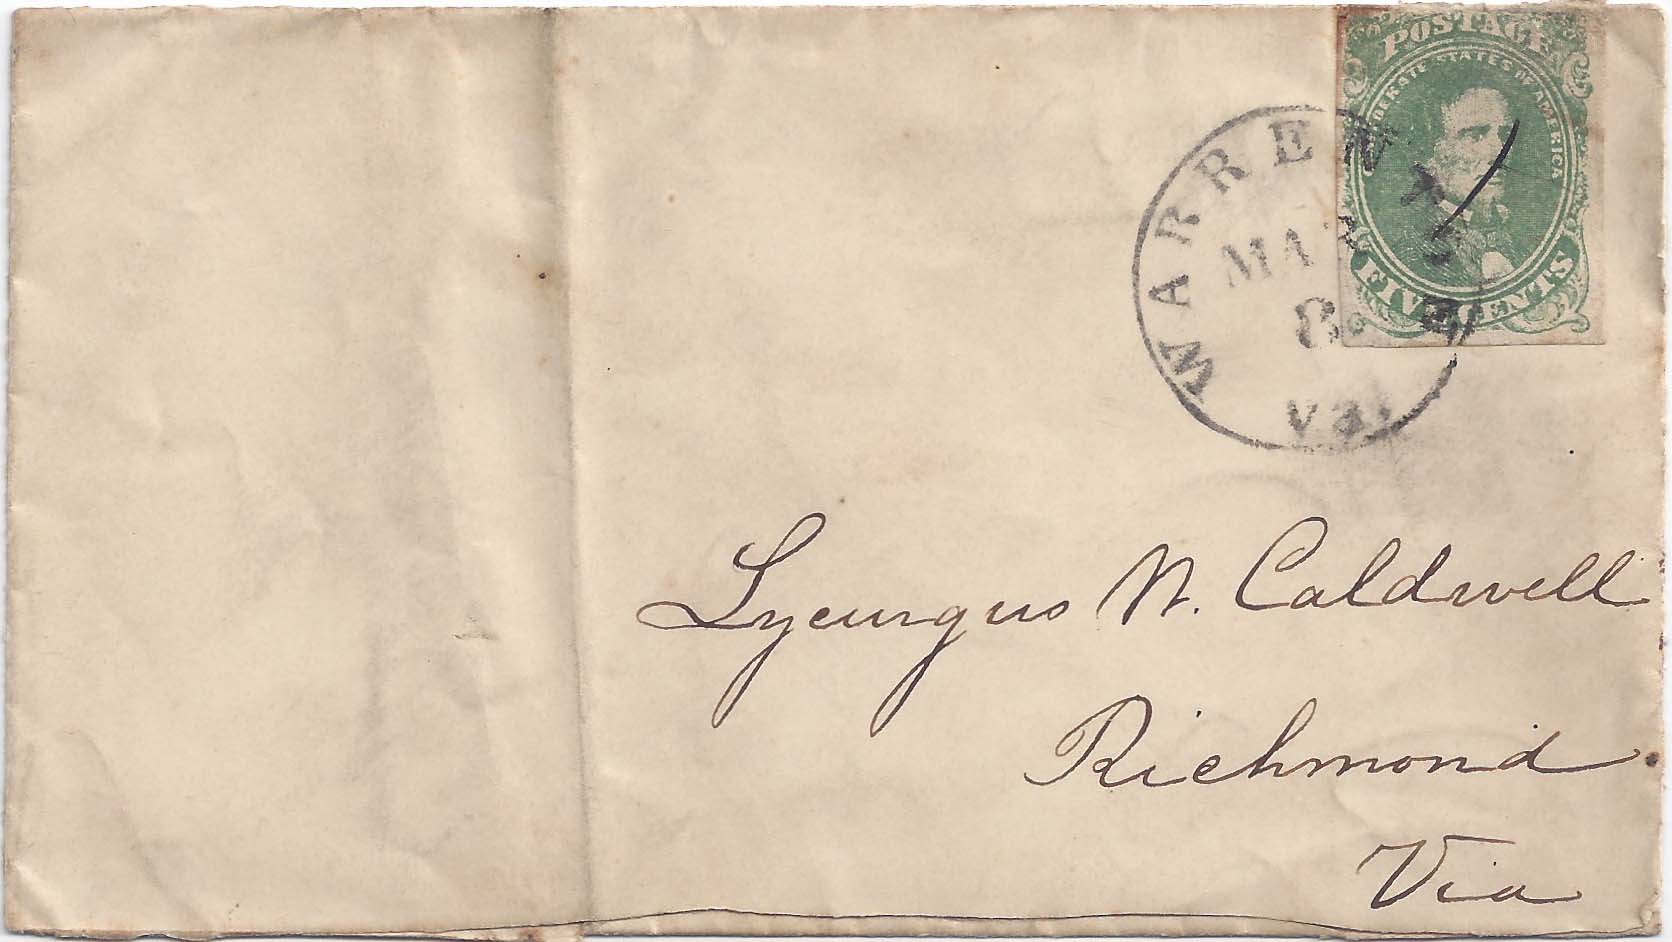 POSTAGE
CONFEDERATE STATES OF AMERICA
FIVE CENTS
WARRENTON
MAR
8
Va.
Lycurgus N. Caldwell
Richmond
Via